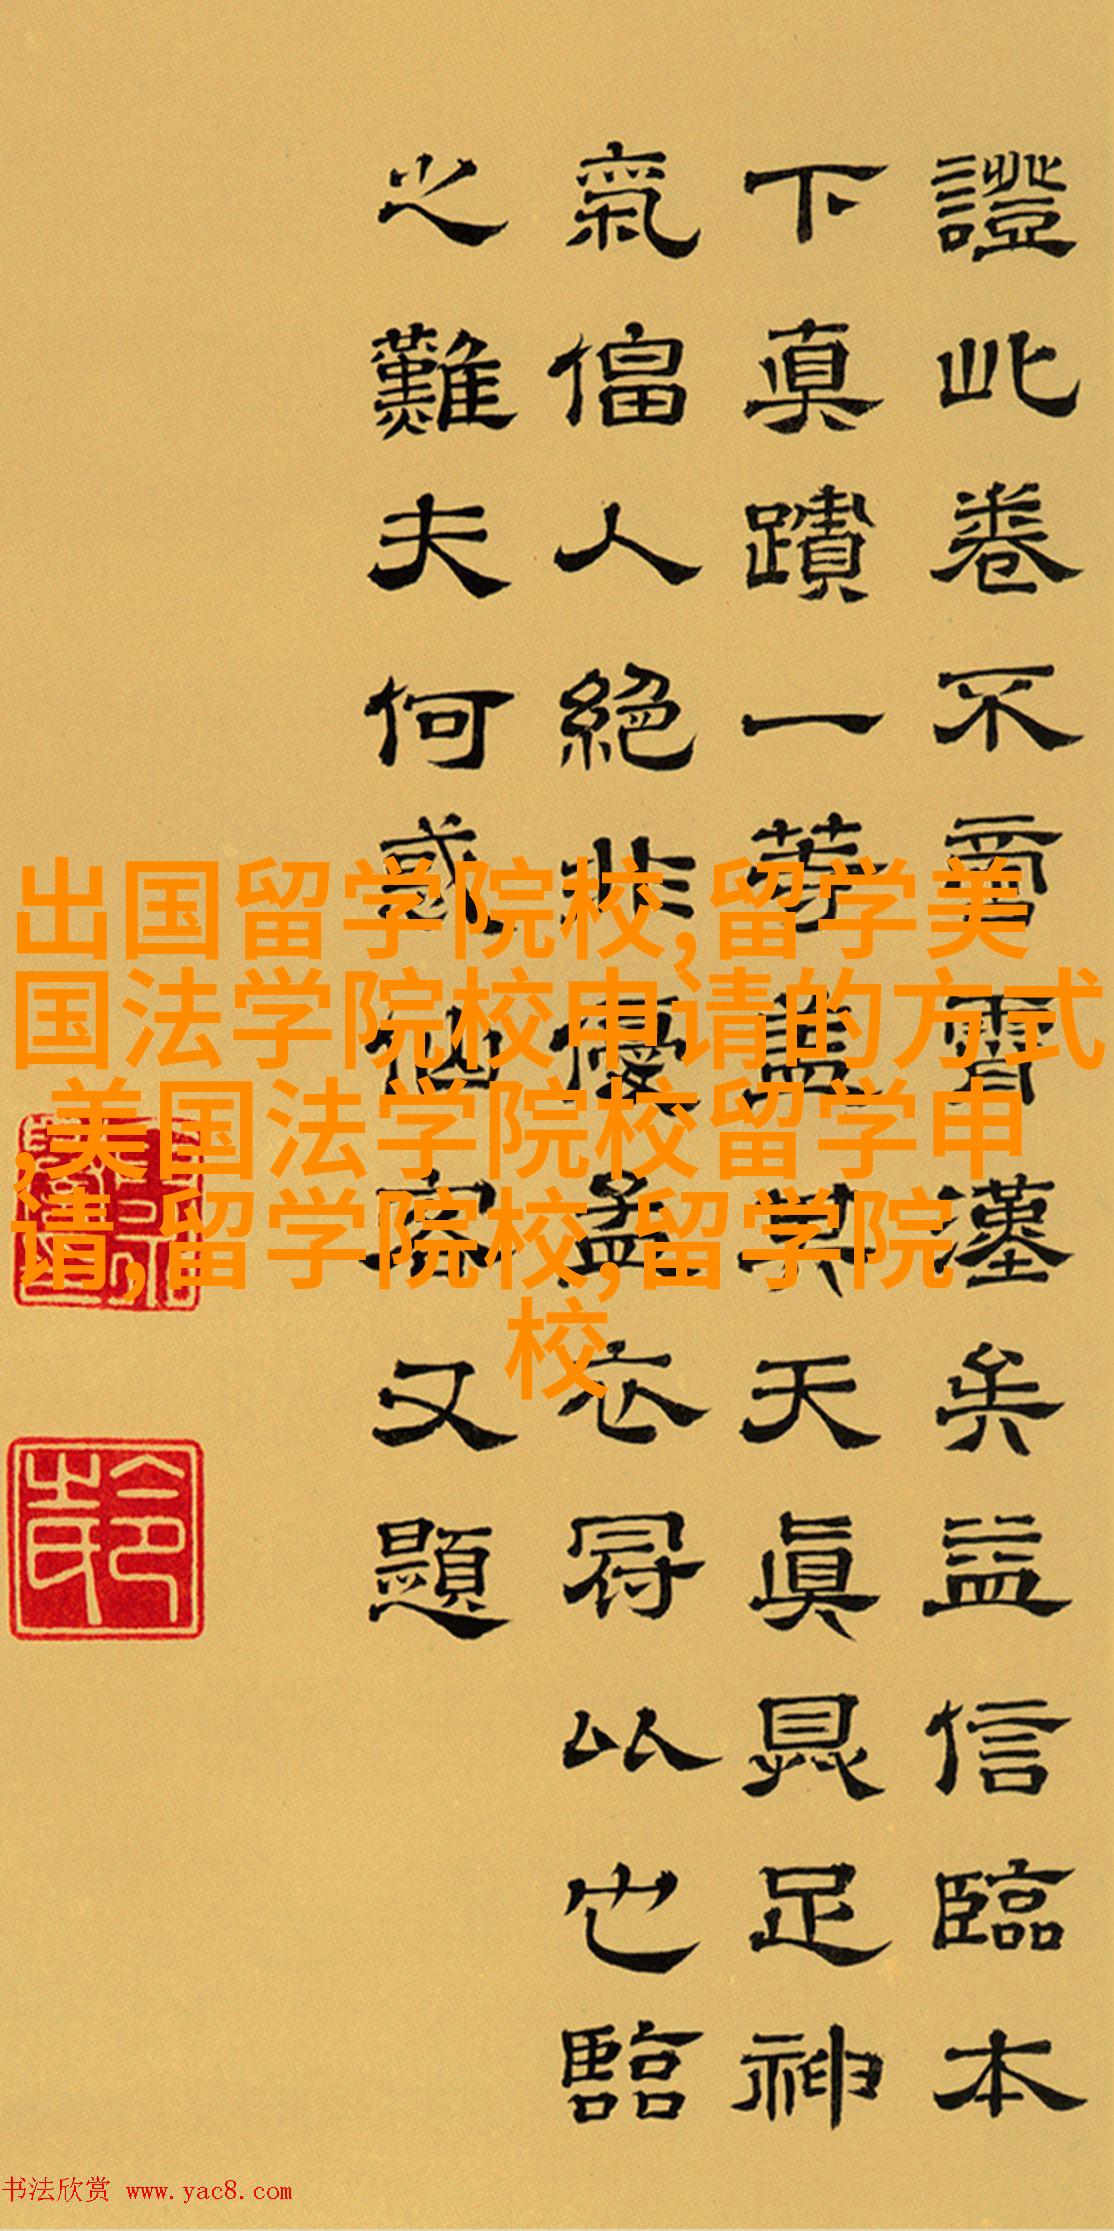 證此卷不霄漢矣益信臨本
下真蹟一等蓋其天眞具足神
氣偪人絕非優孟衣冠以也臨
之難夫何又題
出国留学院校,留学美
国法学院校申请的方式
,美国法学院校留学申
请,留学院校,留学院
校
书法欣赏 www.yac8.com